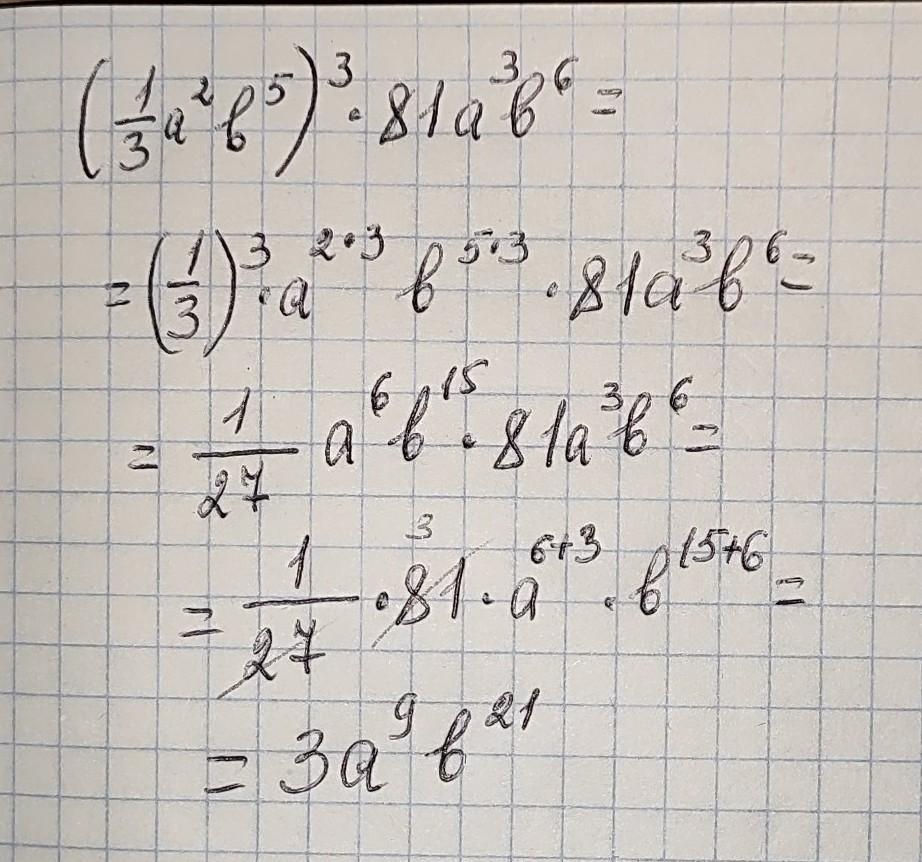 (1/3 a² b⁵)³ · 81a³b⁶ =
= (1/3)³ · a²˙³ b⁵˙³ · 81a³b⁶ =
= 1/27 a⁶b¹⁵ · 81a³b⁶ =
= 1/27 · 81 ³ · a⁶⁺³ · b¹⁵⁺⁶ =
= 3a⁹b²¹